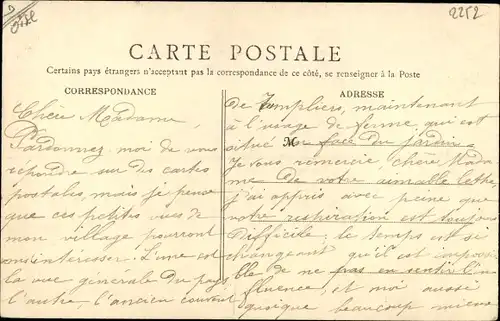 Oise
2252
CARTE POSTALE
Certains pays étrangers n'acceptant pas la correspondance de ce côté, se renseigner à la Poste
CORRESPONDANCE
Chère Madame
Pardonnez moi de vous
répondre sur des cartes
postales mais je pense
que ces petites vues de
mon village pourront
vous intéresser. L'une est
la vue générale du pays
l'autre, l'ancien couvent
ADRESSE
M
de Templiers, maintenant
à l'usage de ferme qui est
situé en face du jardin
Je vous remercie, chère Mada
me de votre aimable lettre
j'ai appris avec peine que
votre respiration est toujours
difficile: le temps est si
changeant qu'il est impossi
ble de ne pas en sentir l'in
fluence, et moi aussi
quoique beaucoup mieux